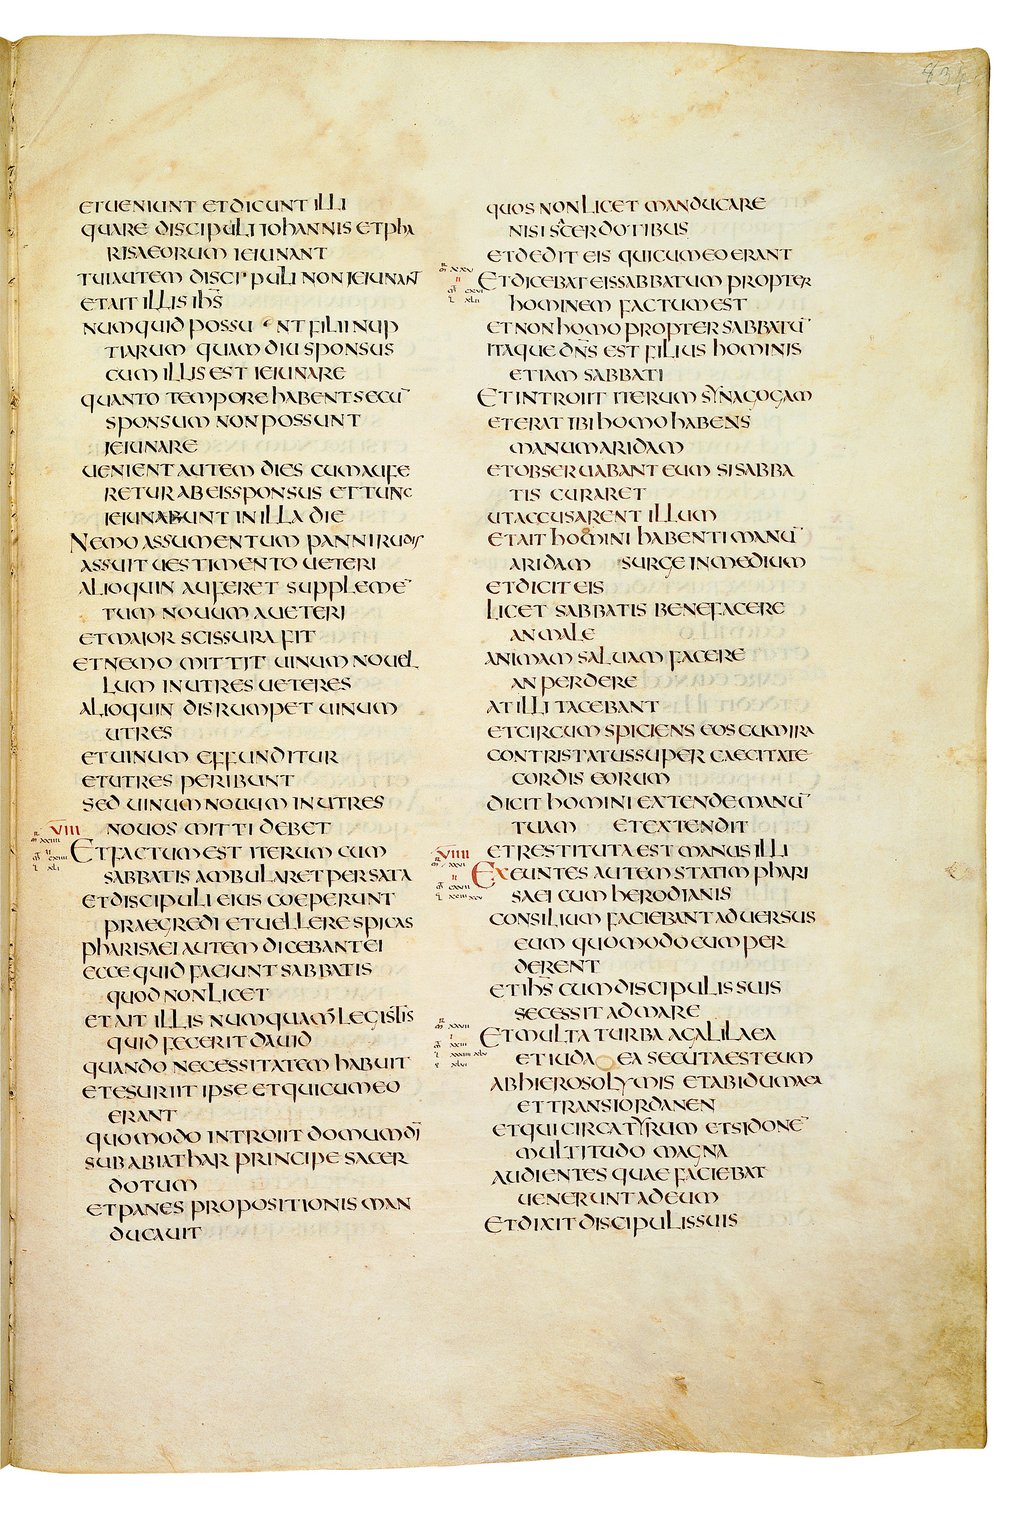 834
ET UENIUNT ET DICUNT ILLI
QUARE DISCIPULI IOHANNIS ET PHA
RISAEORUM IEIUNANT
TUI AUTEM DISCIPULI NON IEIUNANT
ET AIT ILLIS IHS̄
NUMQUID POSSUNT FILII NUP
TIARUM QUAM DIU SPONSUS
CUM ILLIS EST IEIUNARE
QUANTO TEMPORE HABENT SECŪ
SPONSUM NON POSSUNT
IEIUNARE
UENIENT AUTEM DIES CUM AUFE
RETUR AB EIS SPONSUS ET TUNC
IEIUNABUNT IN ILLA DIE
NEMO ASSUMENTUM PANNI RUDIS
ASSUIT UESTIMENTO UETERI
ALIOQUIN AUFERET SUPPLEMĒ
TUM NOUUM A UETERI
ET MAIOR SCISSURA FIT
ET NEMO MITTIT UINUM NOUEL
LUM IN UTRES UETERES
ALIOQUIN DISRUMPET UINUM
UTRES
ET UINUM EFFUNDITUR
ET UTRES PERIBUNT
SED UINUM NOUUM IN UTRES
VIII NOUOS MITTI DEBET
ET FACTUM EST ITERUM CUM
SABBATIS AMBULARET PER SATA
ET DISCIPULI EIUS COEPERUNT
PRAEGREDI ET UELLERE SPICAS
PHARISAEI AUTEM DICEBANT EI
ECCE QUID FACIUNT SABBATIS
QUOD NON LICET
ET AIT ILLIS NUMQUAM LEGISTIS
QUID FECERIT DAUID
QUANDO NECESSITATEM HABUIT
ET ESURIIT IPSE ET QUI CUM EO
ERANT
QUOMODO INTROIIT DOMUM DĪ
SUB ABIATHAR PRINCIPE SACER
DOTUM
ET PANES PROPOSITIONIS MAN
DUCAUIT
QUOS NON LICET MANDUCARE
NISI SACERDOTIBUS
ET DEDIT EIS QUI CUM EO ERANT
ET DICEBAT EIS SABBATUM PROPTER
HOMINEM FACTUM EST
ET NON HOMO PROPTER SABBATŪ
ITAQUE DN̄S EST FILIUS HOMINIS
ETIAM SABBATI
ET INTROIIT ITERUM SYNAGOGAM
ET ERAT IBI HOMO HABENS
MANUM ARIDAM
ET OBSERUABANT EUM SI SABBA
TIS CURARET
UT ACCUSARENT ILLUM
ET AIT HOMINI HABENTI MANŪ
ARIDAM SURGE IN MEDIUM
ET DICIT EIS
LICET SABBATIS BENEFACERE
AN MALE
ANIMAM SALUAM FACERE
AN PERDERE
AT ILLI TACEBANT
ET CIRCUMSPICIENS EOS CUM IRA
CONTRISTATUS SUPER CAECITATE
CORDIS EORUM
DICIT HOMINI EXTENDE MANŪ
TUAM ET EXTENDIT
VIIII ET RESTITUTA EST MANUS ILLI
EXEUNTES AUTEM STATIM PHARI
SAEI CUM HERODIANIS
CONSILIUM FACIEBANT ADUERSUS
EUM QUOMODO EUM PER
DERENT
ET IHS̄ CUM DISCIPULIS SUIS
SECESSIT AD MARE
ET MULTA TURBA A GALILAEA
ET IUDAEA SECUTA EST EUM
AB HIEROSOLYMIS ET AB IDUMAEA
ET TRANSIORDANEN
ET QUI CIRCA TYRUM ET SIDONĒ
MULTITUDO MAGNA
AUDIENTES QUAE FACIEBAT
UENERUNT AD EUM
ET DIXIT DISCIPULIS SUIS